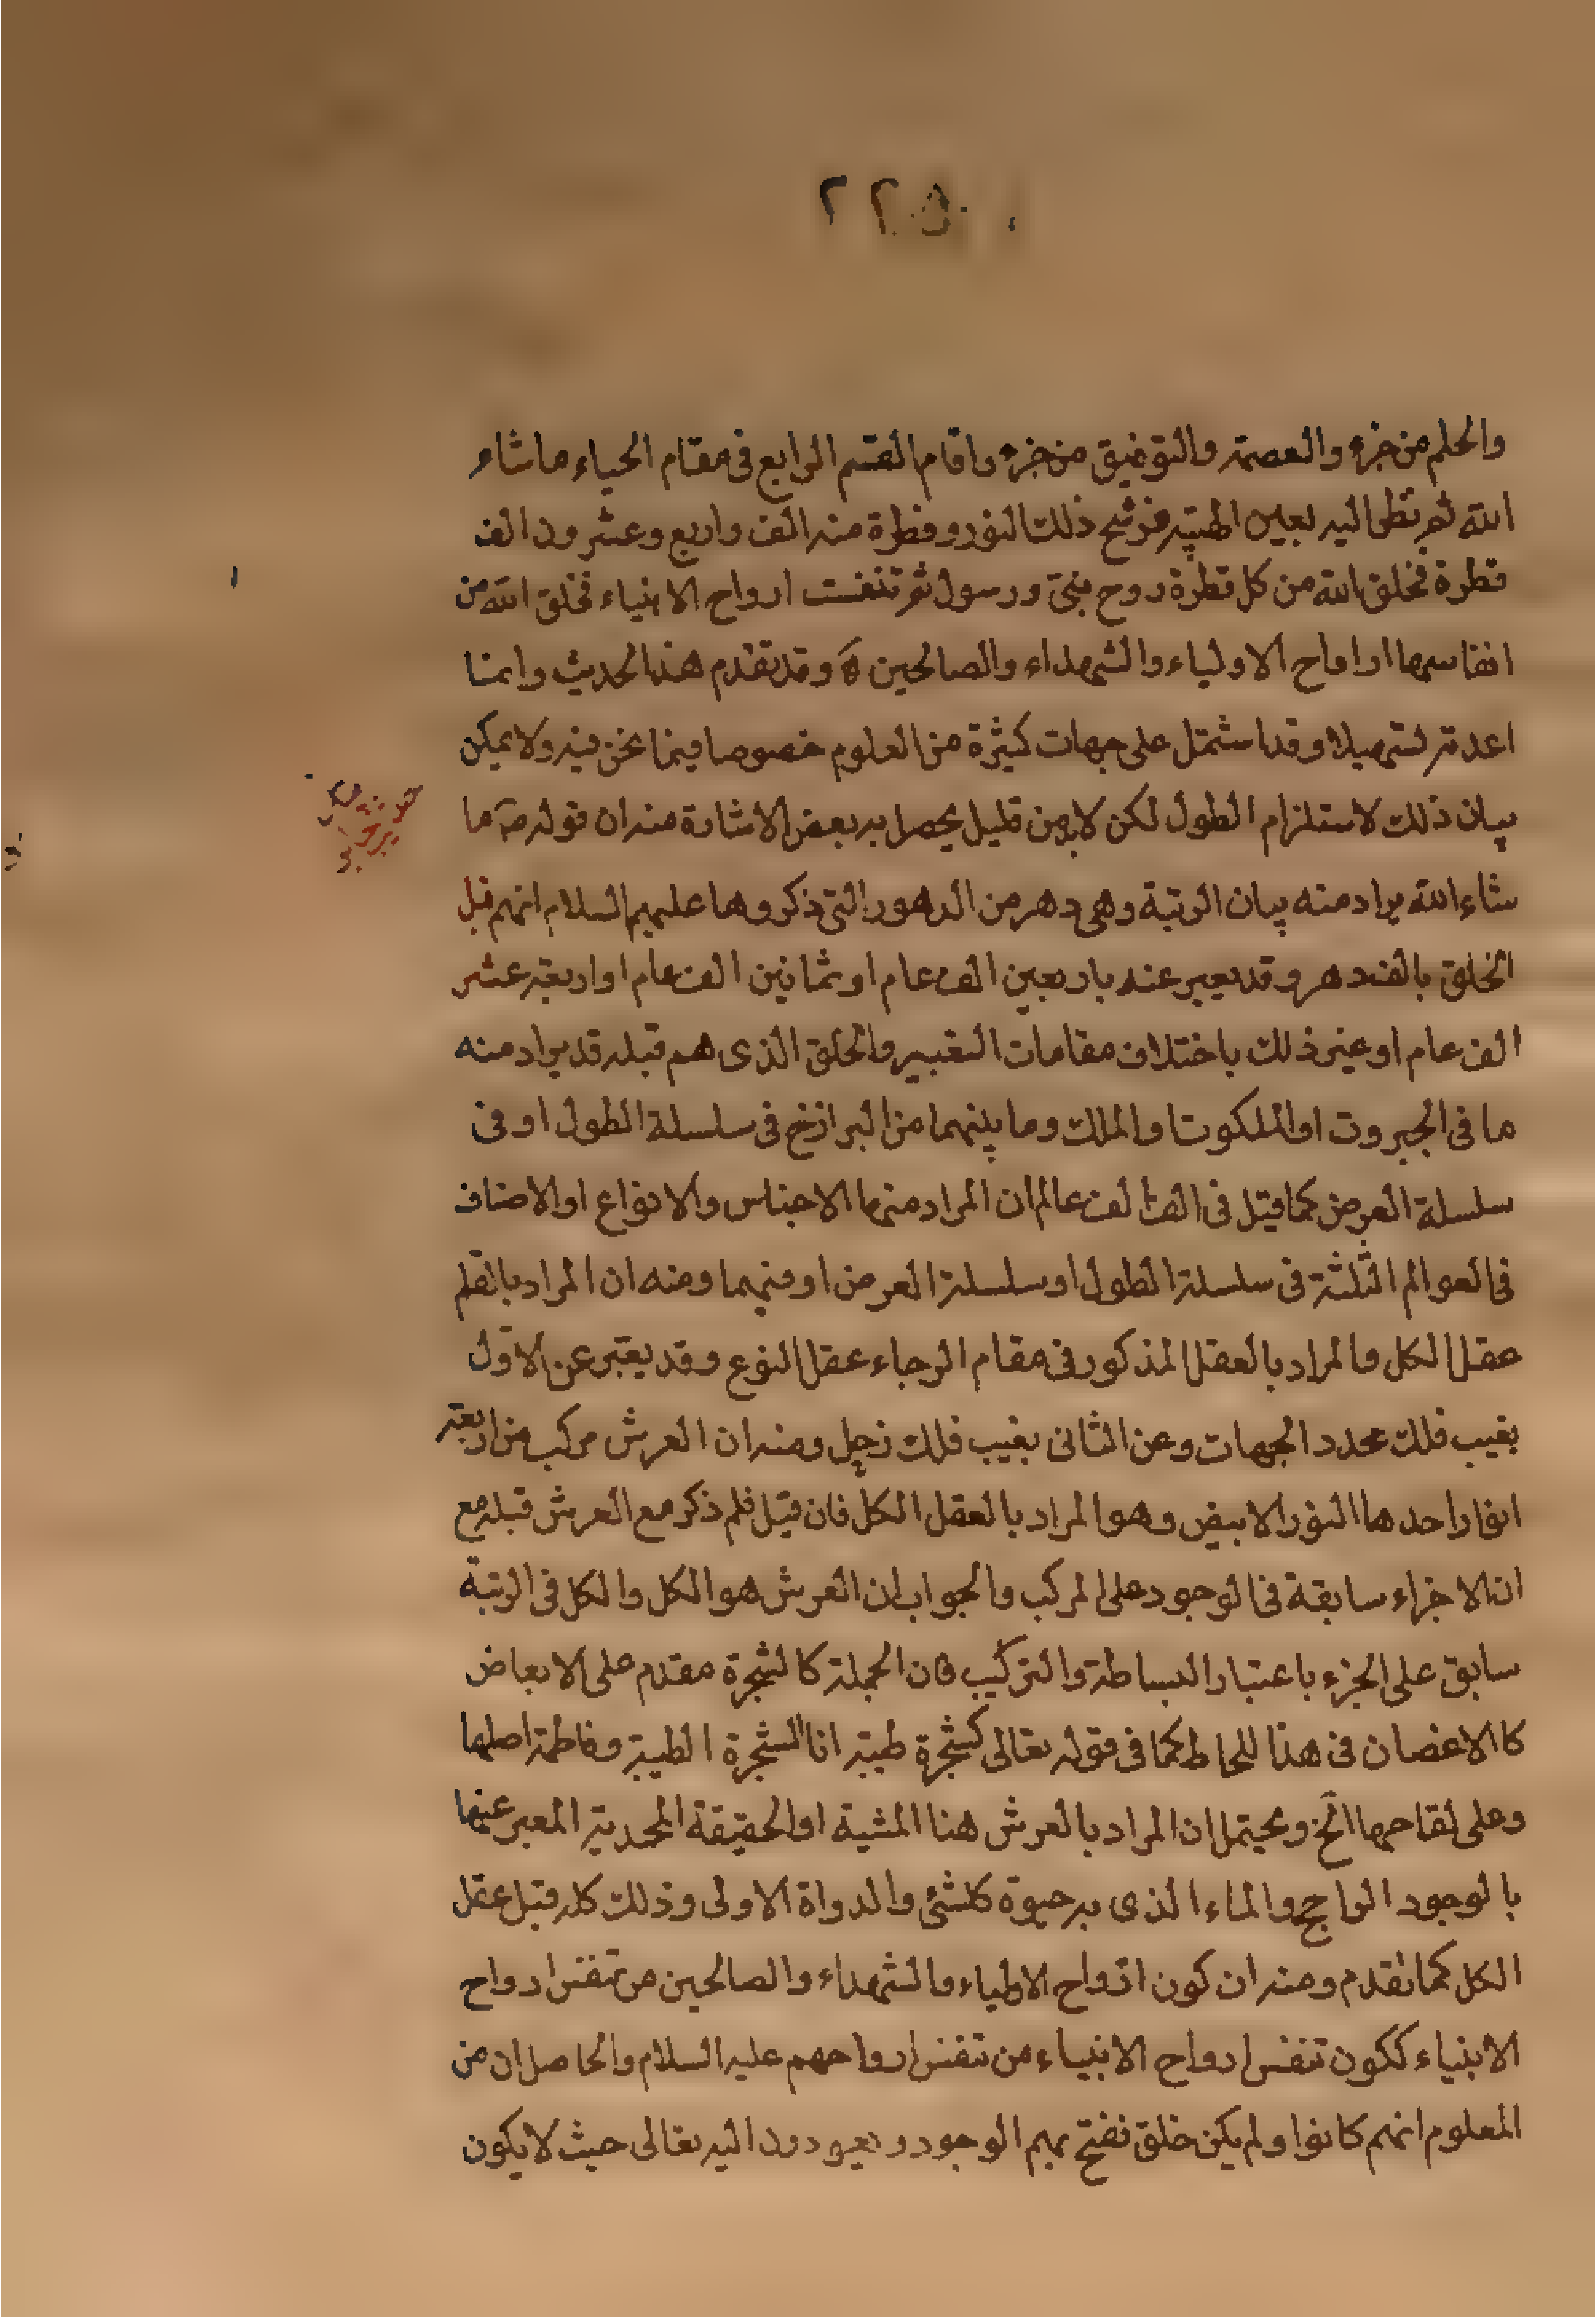 ٢٢٥
والحلم من جزء والعصمة والتوفيق من جزء واقام القسم الرابع فى مقام الحياء ماشاء
الله ثم نظر اليه بعين الهيبة فرشح ذلك النور وقطرة منه الف واربع وعشرون الف
قطرة فخلق الله من كل قطرة روح نبى ورسول ثم تنفست ارواح الانبياء فخلق الله من
انفاسها ارواح الاولياء والشهداء والصالحين ه وقد تقدم هذا الحديث وانما
اعدته تسهيلا وقد اشتمل على جهات كثيرة من العلوم خصوصا فيما نحن فيه ولا يمكن
بيان ذلك لاستلزام الطول لكن لابد من قليل يحصل به بعض الاشارة منه ان قوله ص ما
شاء الله يراد منه بيان الرتبة وهى دهر من الدهور التى ذكروها عليهم السلام انهم قبل
الخلق بالف دهر وقد يعبر عنه باربعين الف عام او ثمانين الف عام او اربعة عشر
الف عام او غير ذلك باختلاف مقامات التعبير والخلق الذى هم قبله قد يراد منه
ما فى الجبروت او الملكوت او الملك وما بينهما من البرازخ فى سلسلة الطول او فى
سلسلة العرض كما قيل فى الف الف عالم ان المراد منها الاجناس والانواع او الاصناف
فى العوالم الثلثة فى سلسلة الطول او سلسلة العرض او فيهما ومنه ان المراد بالقلم
عقل الكل والمراد بالعقل المذكور فى مقام الرجاء عقل النوع وقد يعبر عن الاول
بغيب فلك محدد الجهات وعن الثانى بغيب فلك زحل ومنه ان العرش مركب من اربعة
انوار احدها النور الابيض وهو المراد بالعقل الكل فان قيل فلم ذكر مع العرش قبله مع
ان الاجزاء سابقة فى الوجود على المركب والجواب ان العرش هو الكل والكل فى الرتبة
سابق على الجزء باعتبار البساطة والتركيب فان الجملة كالشجرة مقدم على الابعاض
كالاغصان فى هذا اللحاظ كما فى قوله تعالى كشجرة طيبة انا الشجرة الطيبة وفاطمة اصلها
وعلى لقاحها الخ ويحتمل ان المراد بالعرش هنا المشية او الحقيقة المحمدية المعبر عنها
بالوجود الراجح والماء الذى به حيوة كلشئ والدواة الاولى وذلك كله قبل عقل
الكل كما تقدم ومنه ان كون ارواح الاولياء والشهداء والصالحين من تنفس ارواح
الانبياء ككون تنفس ارواح الانبياء من تنفس ارواحهم عليه السلام والحاصل ان من
المعلوم انهم كانوا ولم يكن خلق نفتح بهم الوجود ويعبدون اليه تعالى حيث لا يكون